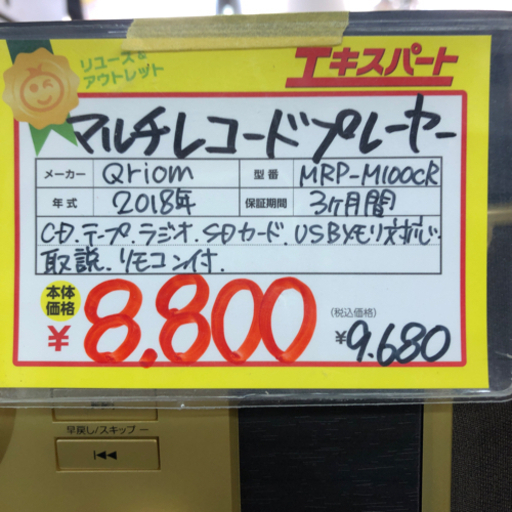 リユース&
アウトレット
エキスパート
マルチレコードプレーヤー
メーカー Qriom 型番 MRP-M100CR
年式 2018年 保証期間 3ヶ月間
CD.テープ.ラジオ.SDカード.USBメモリ対応.
取説.リモコン付.
本体価格 ¥8,800 (税込価格) ¥9.680
早戻し/スキップー